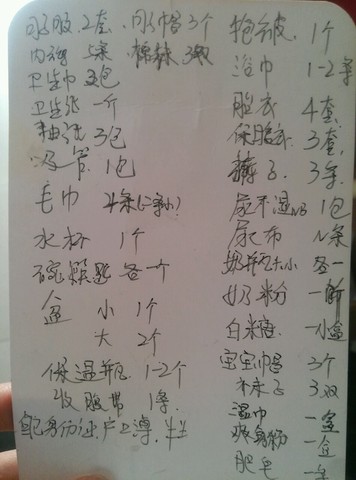 内裤 5条 棉袜 3双
卫生巾 3包
卫生纸 一个
抽纸 3包
吸管 1包
毛巾 4条(二大二小)
水杯 1个
碗 筷 匙 各一个
盆 小 1个
大 2个
保温瓶 1-2个
收腹带 1条
身份证.户口簿.
抱被 1个
浴巾 1-2条
胎衣 4套
保暖衣 3套
裤子 3条
尿不湿 1包
尿布 N条
奶瓶大小 各一
奶粉 一
白米醋 一小盒
宝宝帽 3个
袜子 3双
湿巾 一
爽身粉 一盒
肥皂 一